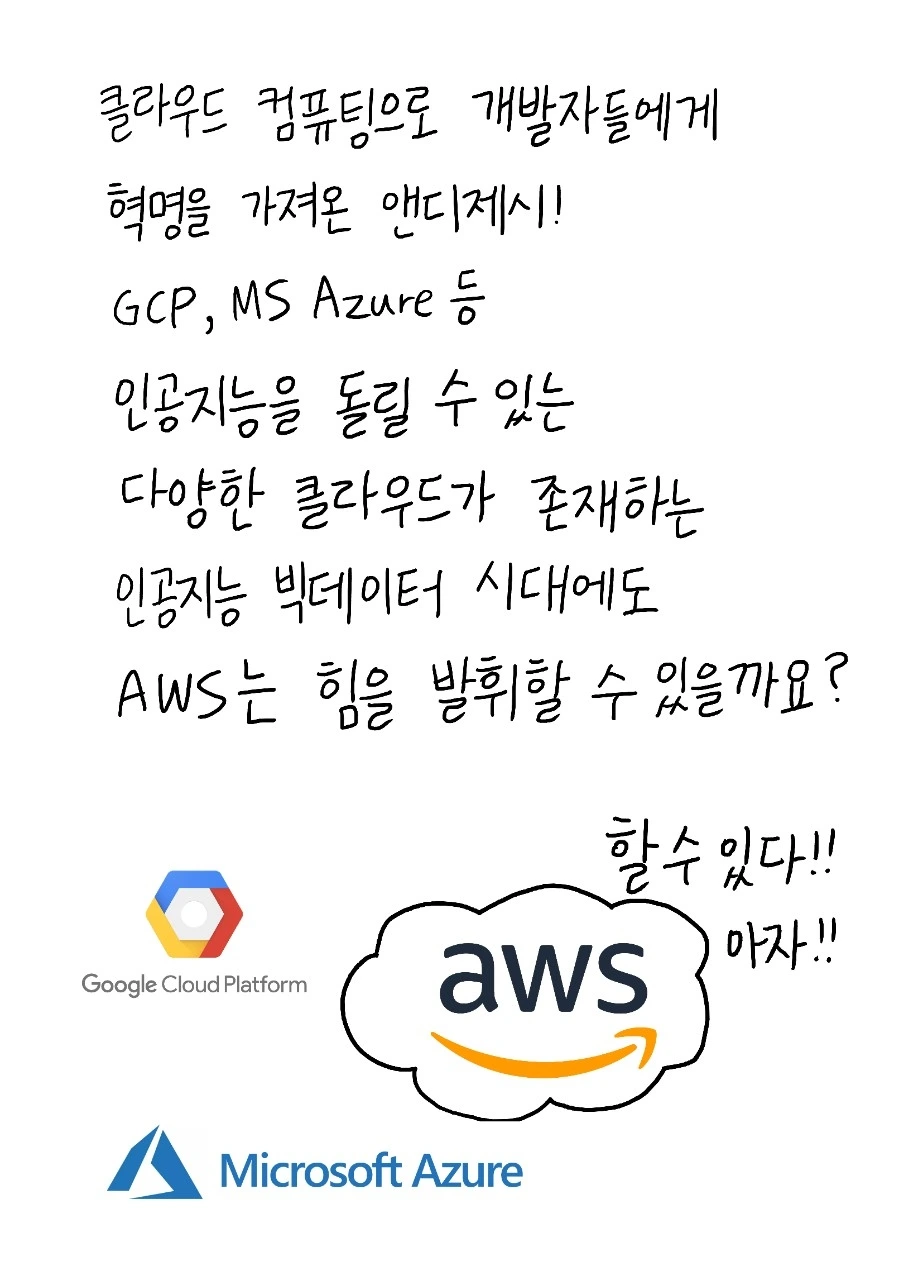 클라우드 컴퓨팅으로 개발자들에게
혁명을 가져온 앤디제시!
GCP, MS Azure 등
인공지능을 돌릴 수 있는
다양한 클라우드가 존재하는
인공지능 빅데이터 시대에도
AWS는 힘을 발휘할 수 있을까요?
할 수 있다!!
아자!!
aws
Google Cloud Platform
Microsoft Azure